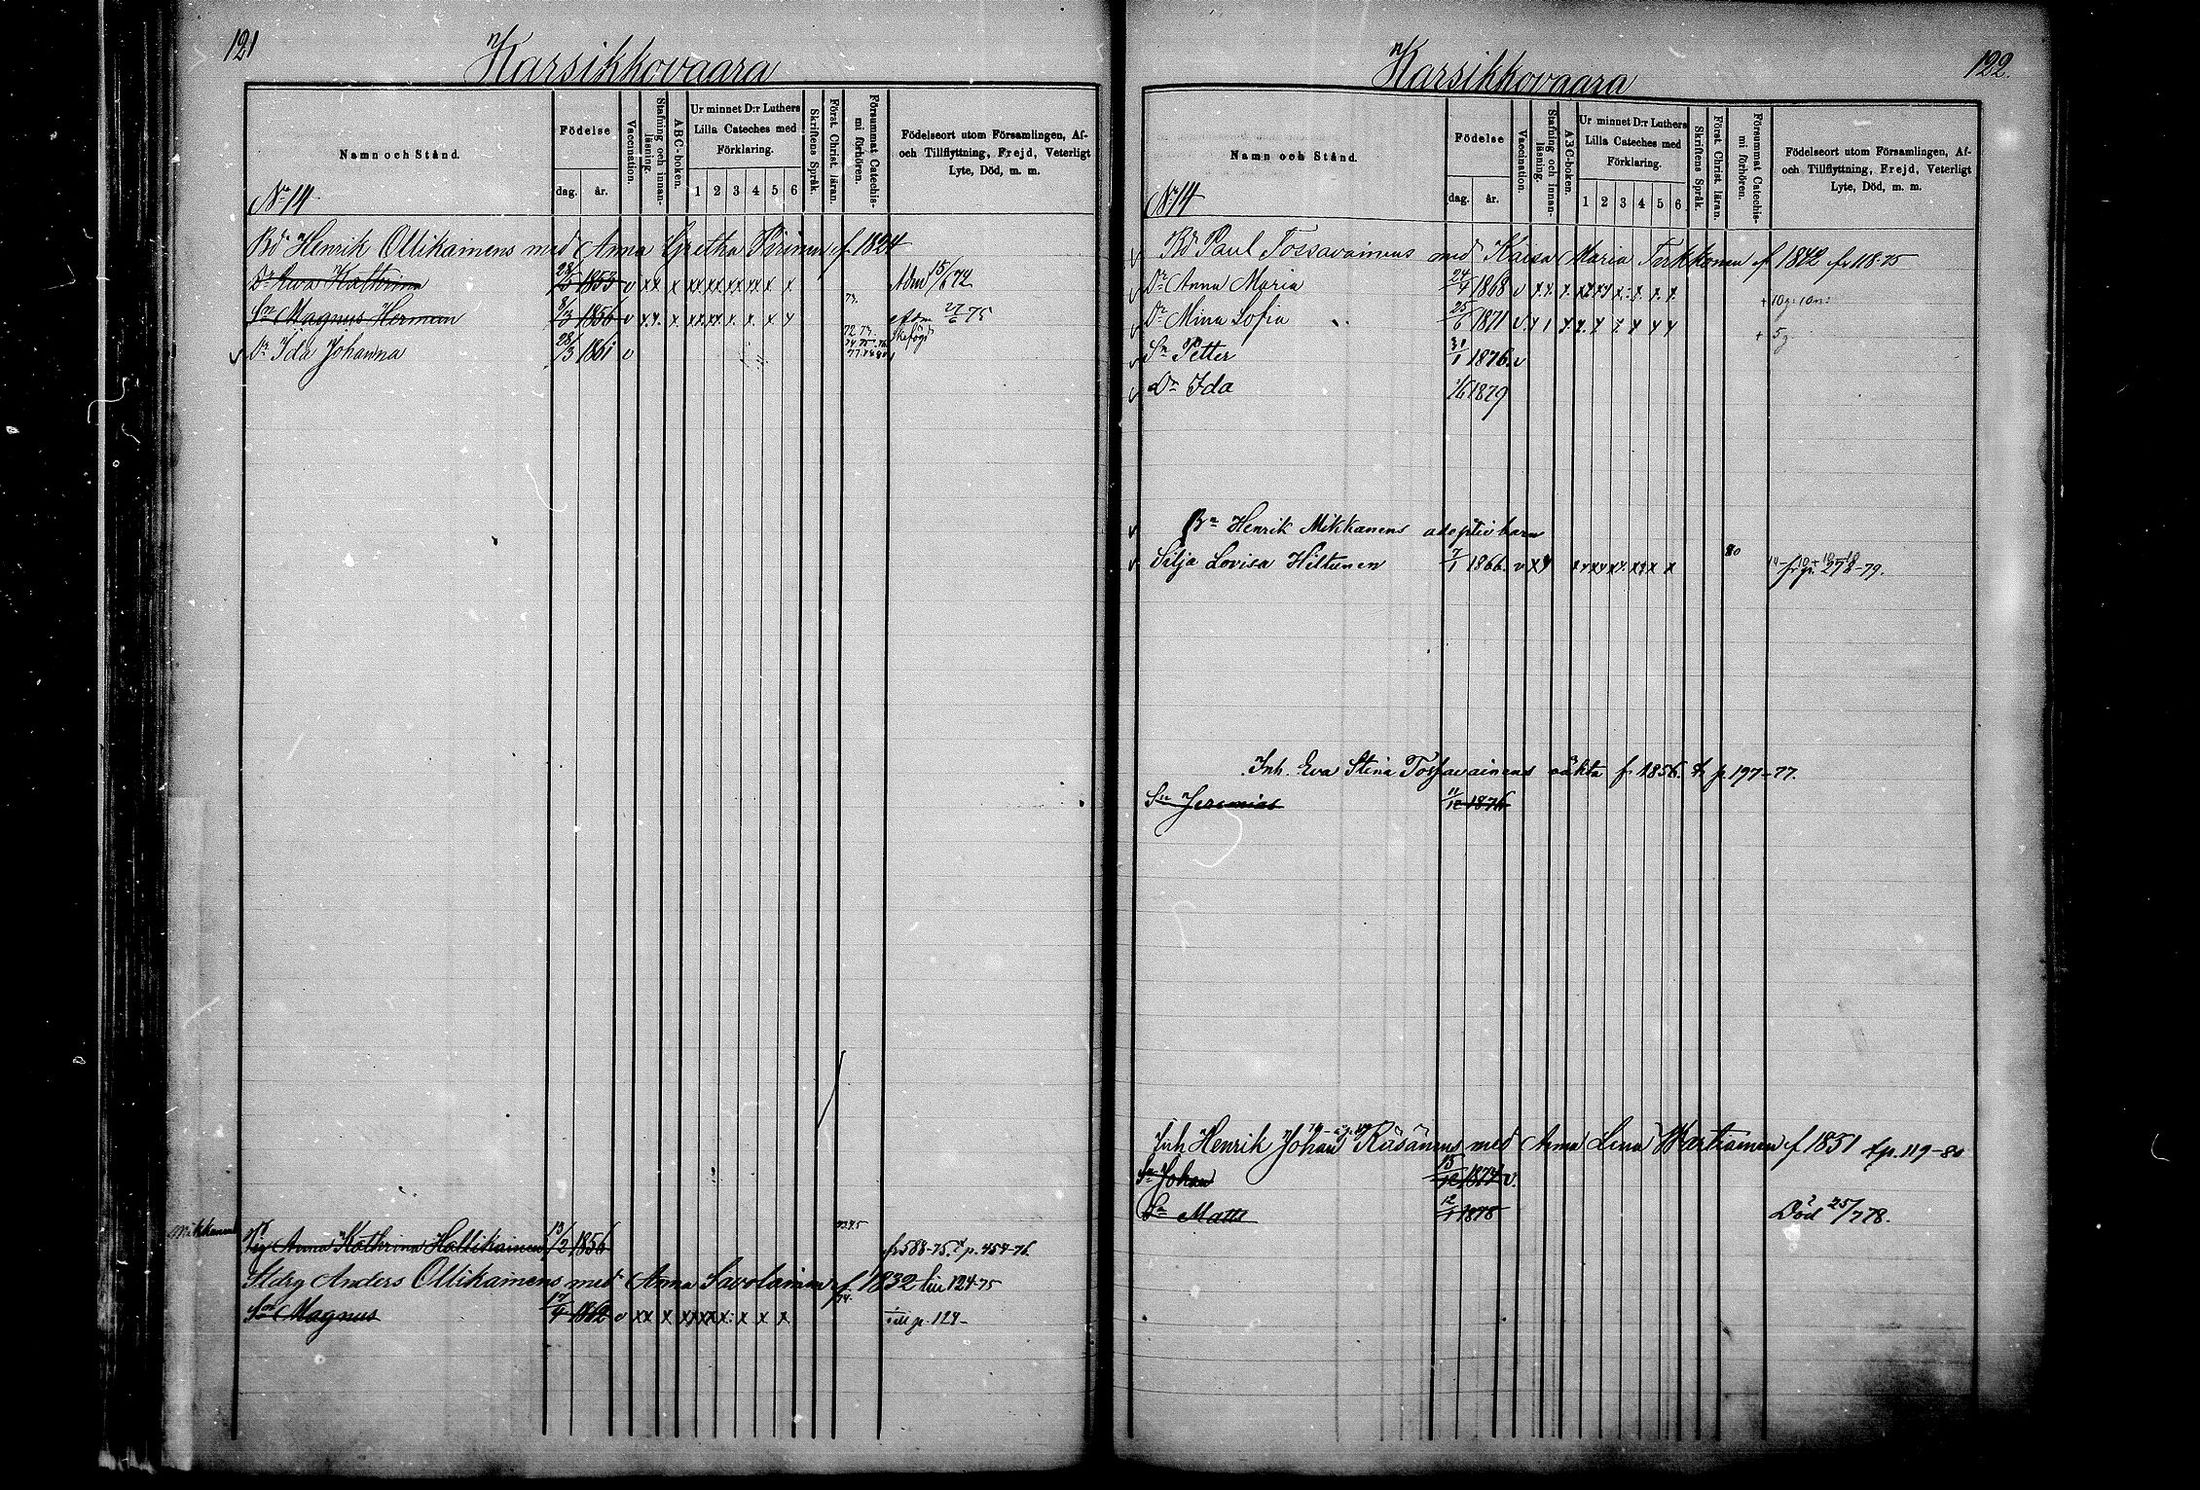 121
Karsikkovaara
Namn och Stånd.
Födelse
dag. år.
Vaccination.
Stafning och innan-
läsning.
ABC-boken.
Ur minnet D:r Luthers
Lilla Cateches med
Förklaring.
1 2 3 4 5 6
Skriftens Språk.
Först. Christ. läran.
Försummat Catechis-
mi förhören.
Födelseort utom Församlingen, Af-
och Tillflyttning, Frejd, Veterligt
Lyte, Död, m. m.
No 14
Bd Henrik Ollikainens med Anna Gretha Piirinen f 1824
Dr Ewa Kathrina 1853 v xx x xx xx xx xx x x Adm 15/6 72
Sn Magnus Herman 8/3 1856 v x.x. x xx xx x. x. x x 73. 27/6 75
Dr Ida Johanna 28/3 1861 v 72. 73.
74. 75. 76.
Mikkanens
Pig Anna Kathrina Hallikainen 13/2 1856 fr 588-75. t p. 454-76.
Stdrg Anders Ollikainens med Anna Savolainen f 1832 124-75
Sn Magnus 17/4 1862 v xx x x x x 74. Till p. 124-
Karsikkovaara
122.
Namn och Stånd.
Födelse
dag. år.
Vaccination.
Stafning och innan-
läsning.
ABC-boken.
Ur minnet D:r Luthers
Lilla Cateches med
Förklaring.
1 2 3 4 5 6
Skriftens Språk.
Först. Christ. läran.
Försummat Catechis-
mi förhören.
Födelseort utom Församlingen, Af-
och Tillflyttning, Frejd, Veterligt
Lyte, Död, m. m.
No 14
Bd Paul Tossavainens med Kaisa Maria Terkkonen f 1842 fr 118-75
Dr Anna Maria 24/4 1868 v
Dr Mina Sofia 25/6 1871 v + 5 g
Sn Petter 31/1 1876 v
Dr Ida 1879
Bn Henrik Mikkanens adoptiv barn
Silja Lovisa Hiltunen 7/1 1866. v xx 80 fr p. 278-79.
Inh. Eva Stina Tossavainens oäkta f. 1856. t p 197-77.
Sn Jeremias 11/12 1876
Inh Henrik Johan Räsänens med Anna Lena Wartiainen f 1851 t p. 119-80
Sn Johan 15/12 1874 v.
Sn Matts 12/1 1878 Död 25/7 78.